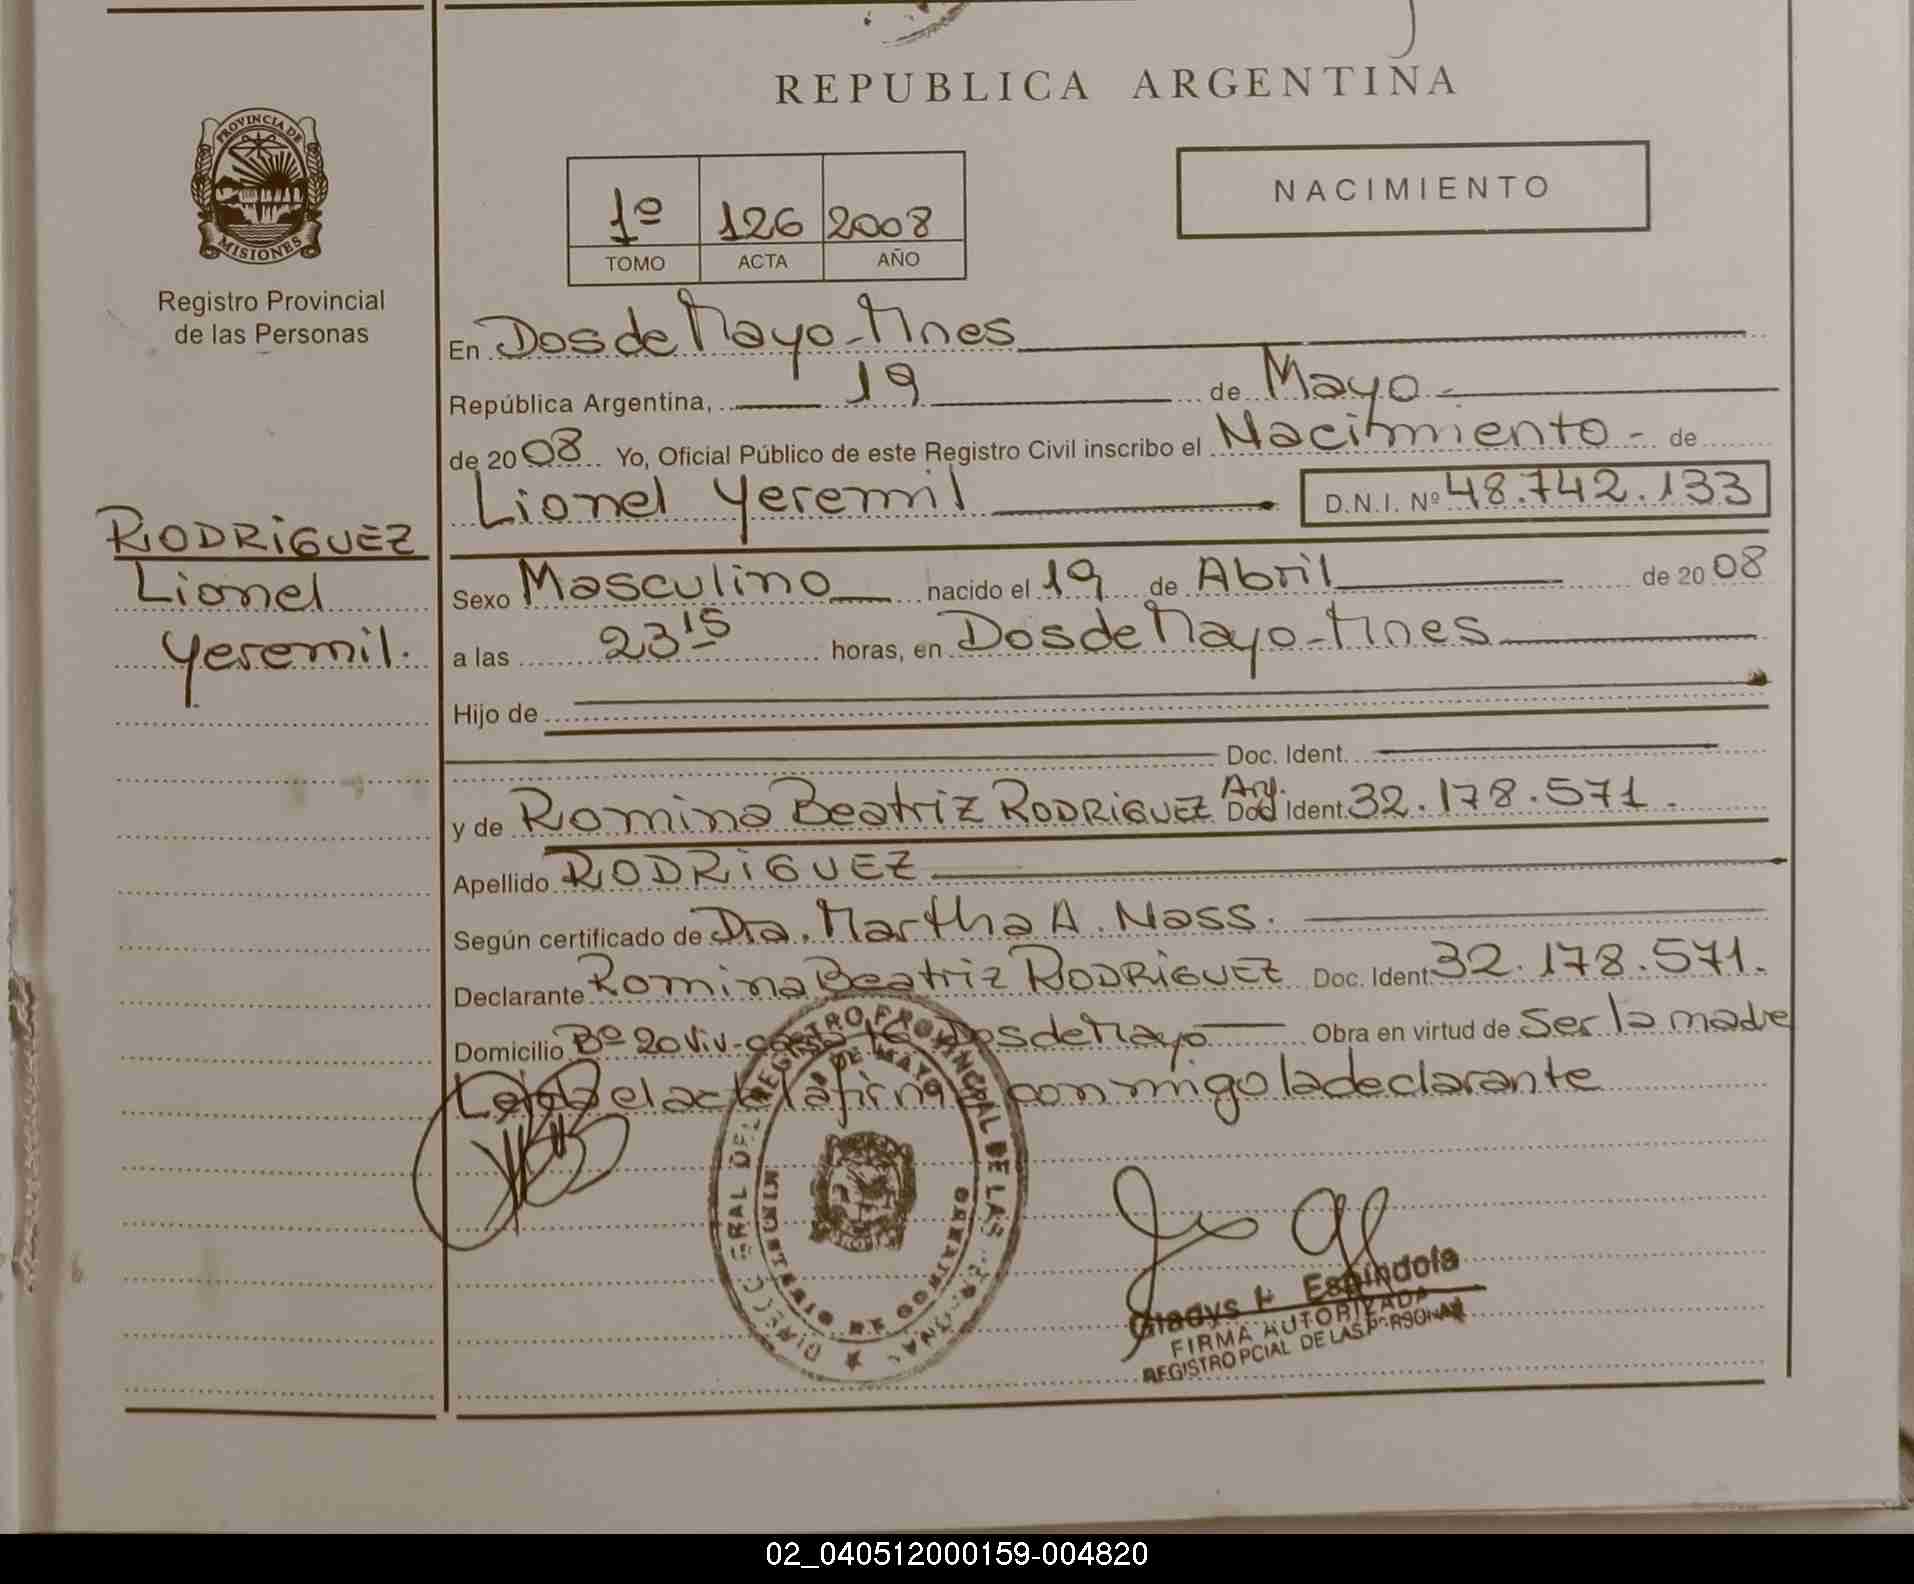 REPUBLICA ARGENTINA
PROVINCIA DE
MISIONES
Registro Provincial
de las Personas
NACIMIENTO
1º 126 2008
TOMO ACTA AÑO
En Dos de Mayo - Mnes
República Argentina, 19 de Mayo
de 2008 Yo, Oficial Público de este Registro Civil inscribo el Nacimiento - de
Lionel Yeremil D.N.I. Nº 48.742.133
RODRiGUEZ
Lionel
Yeremil.
Sexo Masculino nacido el 19 de Abril de 2008
a las 23 15 horas, en Dos de Mayo - Mnes
Hijo de
Doc. Ident.
y de Romina Beatriz RODRiGUEZ Arg. Doc Ident. 32.178.571.
Apellido RODRiGUEZ
Según certificado de Dra. Martha A. Nass.
Declarante Romina Beatriz RODRiGUEZ Doc. Ident. 32.178.571.
Domicilio Bº 20 Viv - Dos de Mayo Obra en virtud de Ser la madre
Leida el acta la firma conmigo la declarante
REGISTRO PROVINCIAL DE LAS
DE MAYO
Gladys Espíndola
FIRMA AUTORIZADA
REGISTRO PCIAL DE LAS PERSONAS
02_040512000159-004820